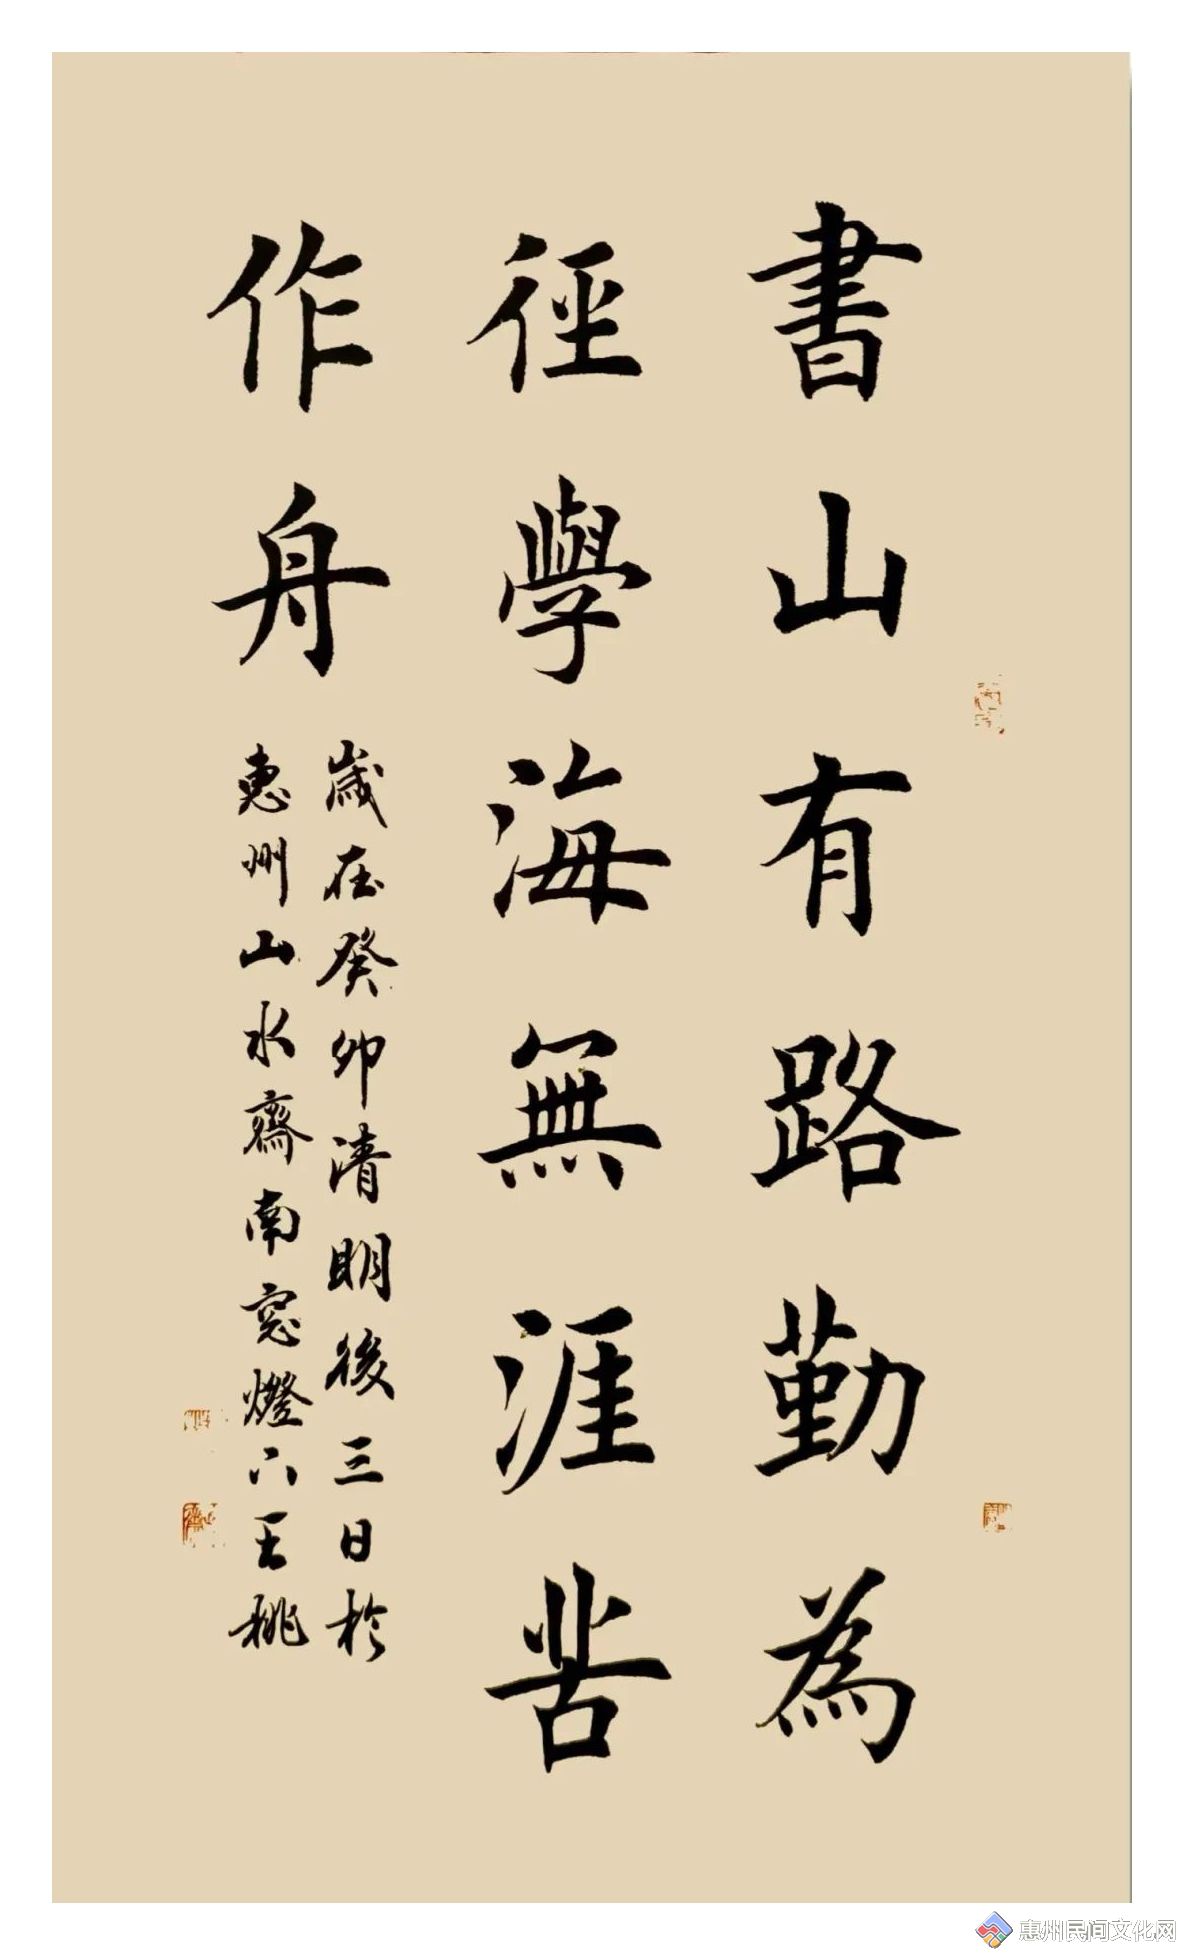 書山有路勤為
徑學海無涯苦
作舟
歲在癸卯清明後三日於
惠州山水齋南窓燈下王桃
惠州民间文化网